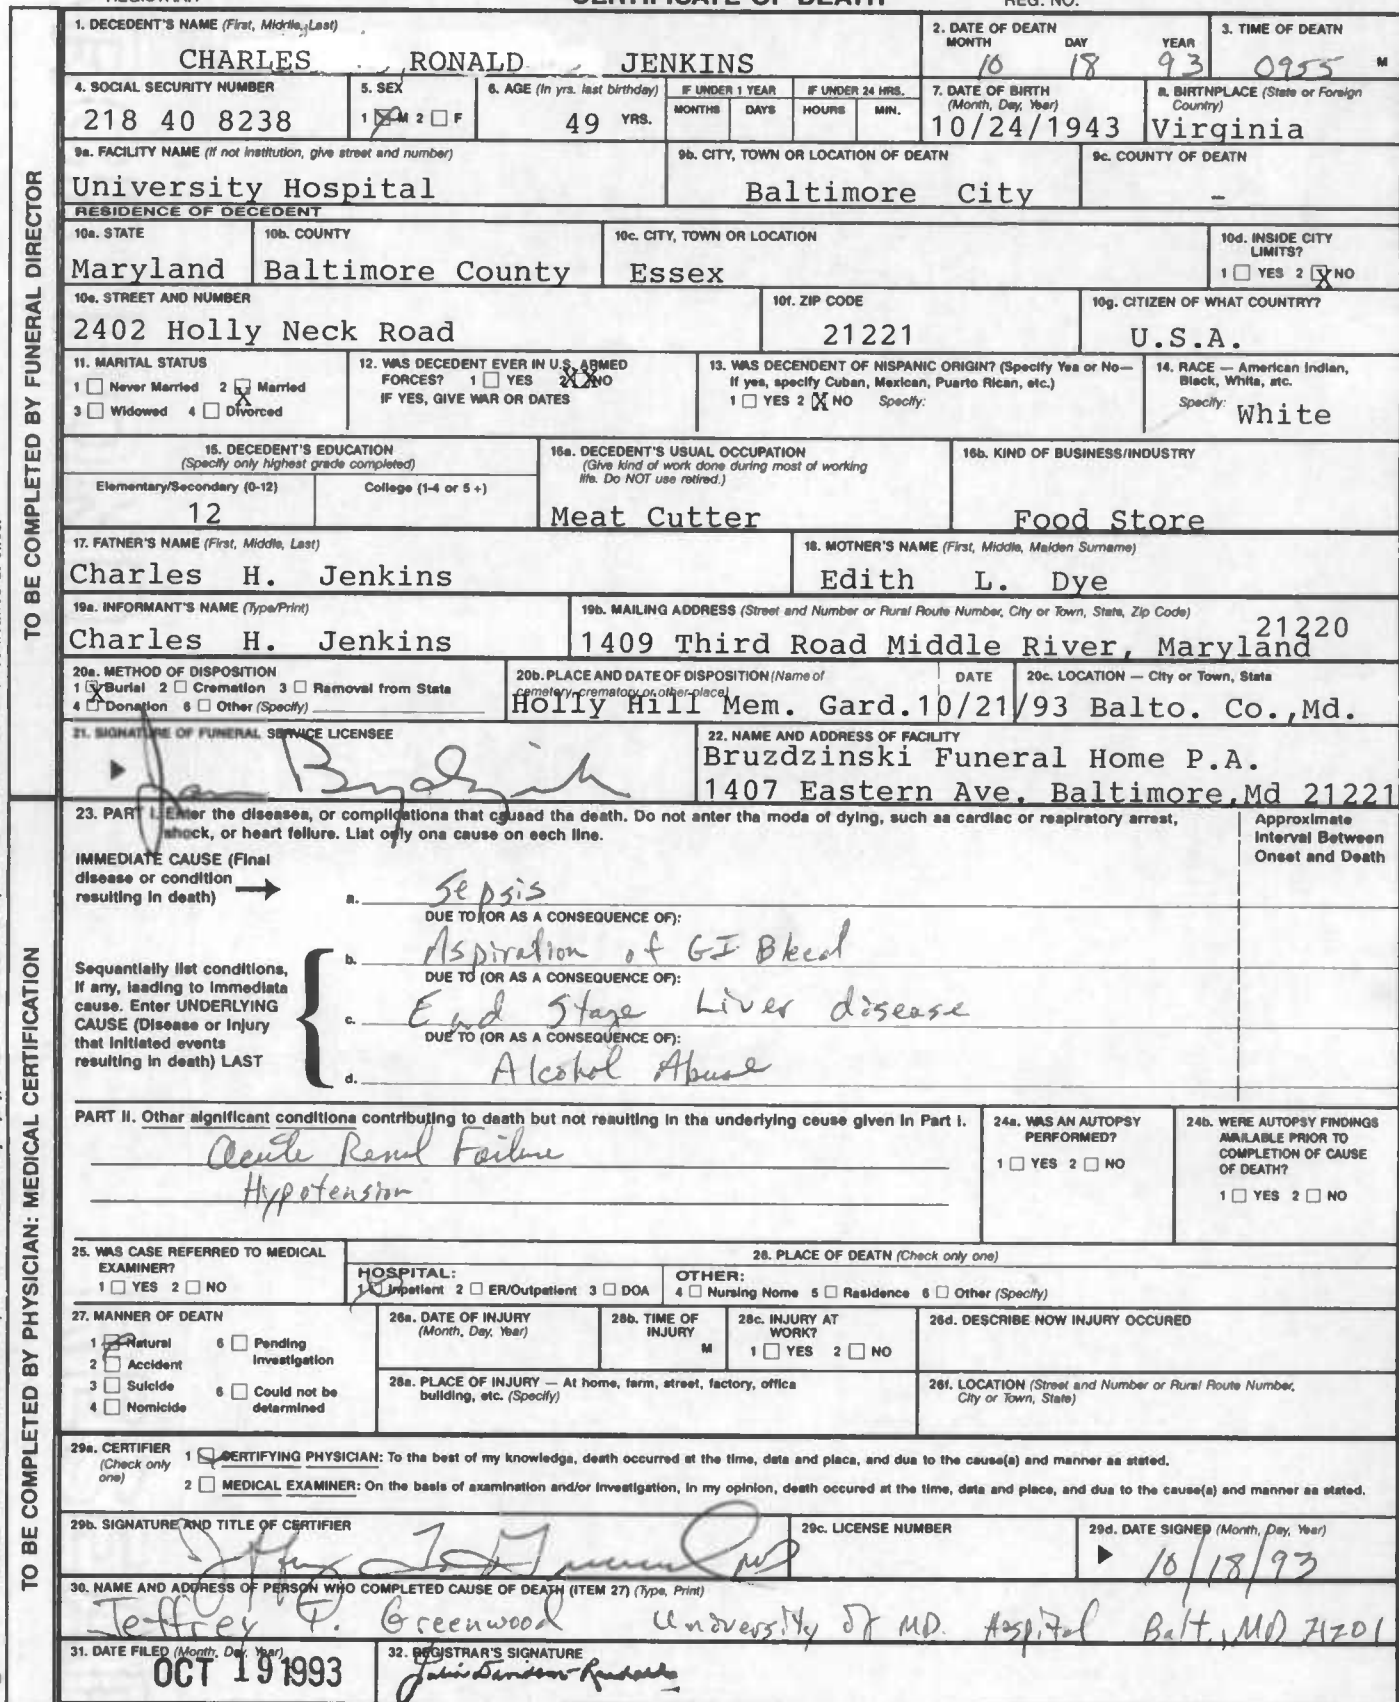 CERTIFICATE OF DEATH
REGISTRAR REG. NO.
1. DECEDENT'S NAME (First, Middle, Last)
CHARLES RONALD JENKINS
2. DATE OF DEATH
MONTH DAY YEAR
10 18 93
3. TIME OF DEATH
0955 M
4. SOCIAL SECURITY NUMBER
218 40 8238
5. SEX
1 M 2 F
6. AGE (In yrs. last birthday)
49 YRS.
IF UNDER 1 YEAR
MONTHS DAYS
IF UNDER 24 HRS.
HOURS MIN.
7. DATE OF BIRTH
(Month, Day, Year)
10/24/1943
8. BIRTHPLACE (State or Foreign
Country)
Virginia
9a. FACILITY NAME (If not institution, give street and number)
University Hospital
9b. CITY, TOWN OR LOCATION OF DEATH
Baltimore City
9c. COUNTY OF DEATH
-
RESIDENCE OF DECEDENT
10a. STATE
Maryland
10b. COUNTY
Baltimore County
10c. CITY, TOWN OR LOCATION
Essex
10d. INSIDE CITY
LIMITS?
1 YES 2 X NO
10e. STREET AND NUMBER
2402 Holly Neck Road
10f. ZIP CODE
21221
10g. CITIZEN OF WHAT COUNTRY?
U.S.A.
11. MARITAL STATUS
1 Never Married 2 X Married
3 Widowed 4 Divorced
12. WAS DECEDENT EVER IN U.S. ARMED
FORCES? 1 YES 2 XX NO
IF YES, GIVE WAR OR DATES
13. WAS DECENDENT OF HISPANIC ORIGIN? (Specify Yes or No—
If yes, specify Cuban, Mexican, Puerto Rican, etc.)
1 YES 2 X NO Specify:
14. RACE — American Indian,
Black, White, etc.
Specify: White
15. DECEDENT'S EDUCATION
(Specify only highest grade completed)
Elementary/Secondary (0-12) College (1-4 or 5+)
12
16a. DECEDENT'S USUAL OCCUPATION
(Give kind of work done during most of working
life. Do NOT use retired.)
Meat Cutter
16b. KIND OF BUSINESS/INDUSTRY
Food Store
17. FATHER'S NAME (First, Middle, Last)
Charles H. Jenkins
18. MOTHER'S NAME (First, Middle, Maiden Surname)
Edith L. Dye
19a. INFORMANT'S NAME (Type/Print)
Charles H. Jenkins
19b. MAILING ADDRESS (Street and Number or Rural Route Number, City or Town, State, Zip Code)
1409 Third Road Middle River, Maryland 21220
20a. METHOD OF DISPOSITION
1 X Burial 2 Cremation 3 Removal from State
4 Donation 5 Other (Specify)
20b. PLACE AND DATE OF DISPOSITION (Name of
cemetery, crematory or other place) DATE
Holly Hill Mem. Gard. 10/21/93
20c. LOCATION — City or Town, State
Balto. Co., Md.
21. SIGNATURE OF FUNERAL SERVICE LICENSEE
22. NAME AND ADDRESS OF FACILITY
Bruzdzinski Funeral Home P.A.
1407 Eastern Ave. Baltimore, Md 21221
TO BE COMPLETED BY FUNERAL DIRECTOR
23. PART I. Enter the diseases, or complications that caused the death. Do not enter the mode of dying, such as cardiac or respiratory arrest,
shock, or heart failure. List only one cause on each line.
Approximate
Interval Between
Onset and Death
IMMEDIATE CAUSE (Final
disease or condition
resulting in death)
a. Sepsis
DUE TO (OR AS A CONSEQUENCE OF):
b. Aspiration of GI Bleed
DUE TO (OR AS A CONSEQUENCE OF):
c. End Stage Liver disease
DUE TO (OR AS A CONSEQUENCE OF):
d. Alcohol Abuse
Sequentially list conditions,
if any, leading to immediate
cause. Enter UNDERLYING
CAUSE (Disease or injury
that initiated events
resulting in death) LAST
PART II. Other significant conditions contributing to death but not resulting in the underlying cause given in Part I.
Acute Renal Failure
Hypotension
24a. WAS AN AUTOPSY
PERFORMED?
1 YES 2 NO
24b. WERE AUTOPSY FINDINGS
AVAILABLE PRIOR TO
COMPLETION OF CAUSE
OF DEATH?
1 YES 2 NO
25. WAS CASE REFERRED TO MEDICAL
EXAMINER?
1 YES 2 NO
26. PLACE OF DEATH (Check only one)
HOSPITAL:
1 Inpatient 2 ER/Outpatient 3 DOA
OTHER:
4 Nursing Home 5 Residence 6 Other (Specify)
27. MANNER OF DEATH
1 Natural 5 Pending
2 Accident Investigation
3 Suicide 6 Could not be
4 Homicide determined
28a. DATE OF INJURY
(Month, Day, Year)
28b. TIME OF
INJURY
M
28c. INJURY AT
WORK?
1 YES 2 NO
28d. DESCRIBE HOW INJURY OCCURED
28e. PLACE OF INJURY — At home, farm, street, factory, office
building, etc. (Specify)
28f. LOCATION (Street and Number or Rural Route Number,
City or Town, State)
29a. CERTIFIER
(Check only
one)
1 CERTIFYING PHYSICIAN: To the best of my knowledge, death occurred at the time, date and place, and due to the cause(s) and manner as stated.
2 MEDICAL EXAMINER: On the basis of examination and/or investigation, in my opinion, death occured at the time, date and place, and due to the cause(s) and manner as stated.
29b. SIGNATURE AND TITLE OF CERTIFIER
MD
29c. LICENSE NUMBER
29d. DATE SIGNED (Month, Day, Year)
10/18/93
30. NAME AND ADDRESS OF PERSON WHO COMPLETED CAUSE OF DEATH (ITEM 27) (Type, Print)
Jeffrey T. Greenwood University of MD. Hospital Balt., MD 21201
31. DATE FILED (Month, Day, Year)
OCT 19 1993
32. REGISTRAR'S SIGNATURE
TO BE COMPLETED BY PHYSICIAN: MEDICAL CERTIFICATION